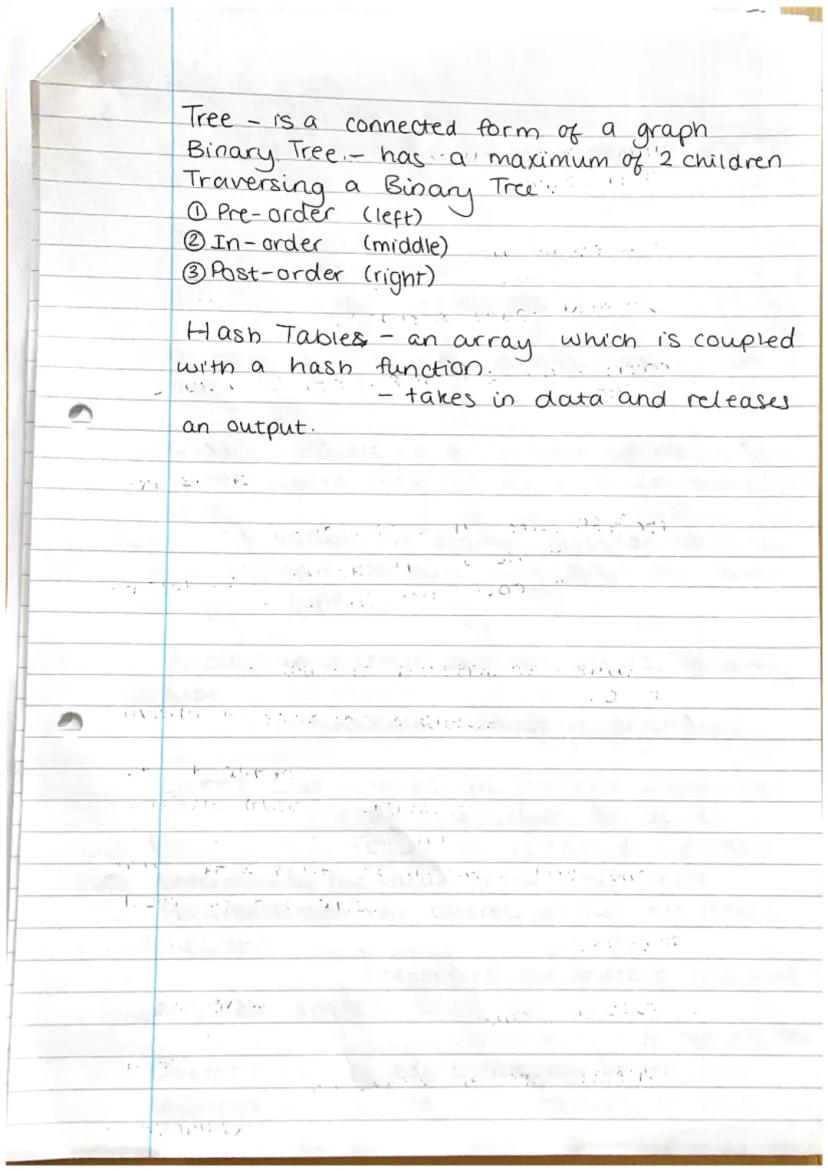 Tree - is a connected form of a graph
Binary Tree - has a maximum of 2 children
Traversing a Binary Tree:
① Pre-order (left)
② In-order (middle)
③ Post-order (right)
Hash Tables - an array which is coupled
with a hash function.
- takes in data and releases
an output.